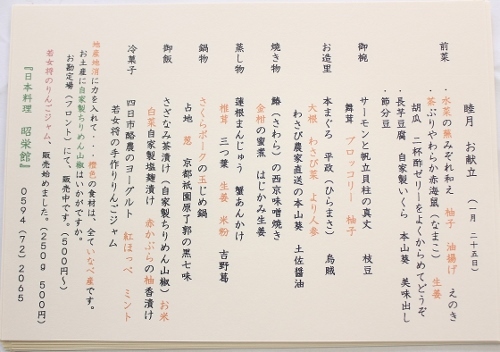 睦月 お献立 (一月 二十五日)
前菜 ・水菜の蕪みぞれ和え 柚子 油揚げ えのき
・茶ぶりやわらか赤海鼠(なまこ) 生姜
胡瓜 二杯酢ゼリーをよくからめてどうぞ
・長芋豆腐 自家製いくら 本山葵 美味出し
・節分豆
御椀 サーモンと帆立貝柱の真丈 枝豆
舞茸 ブロッコリー 柚子
お造里 本まぐろ 平政(ひらまさ) 烏賊
大根 わさび菜 より人参
わさび農家直送の本山葵 土佐醤油
焼き物 鰆(さわら)の西京味噌焼き
金柑の蜜煮 はじかみ生姜
蒸し物 蓮根まんじゅう 蟹あんかけ
椎茸 三つ葉 生姜 米粉 吉野葛
鍋物 さくらポークの玉じめ鍋
占地 葱 京都祇園原了郭の黒七味
御飯 さざなみ茶漬け(自家製ちりめん山椒) お米
白菜自家製塩麹漬け 赤かぶらの柚香漬け
冷菓子 四日市酪農のヨーグルト 紅ほっぺ ミント
若女将の手作りりんごジャム
地産地消に力を入れて・・・橙色の食材は、全ていなべ産です。
お土産に自家製ちりめん山椒はいかがですか。
お勘定場(フロント)にて、販売中です。(500円~)
若女将のりんごジャム、販売始めました。(250g 500円)
『日本料理 昭栄館』 0594(72)2065